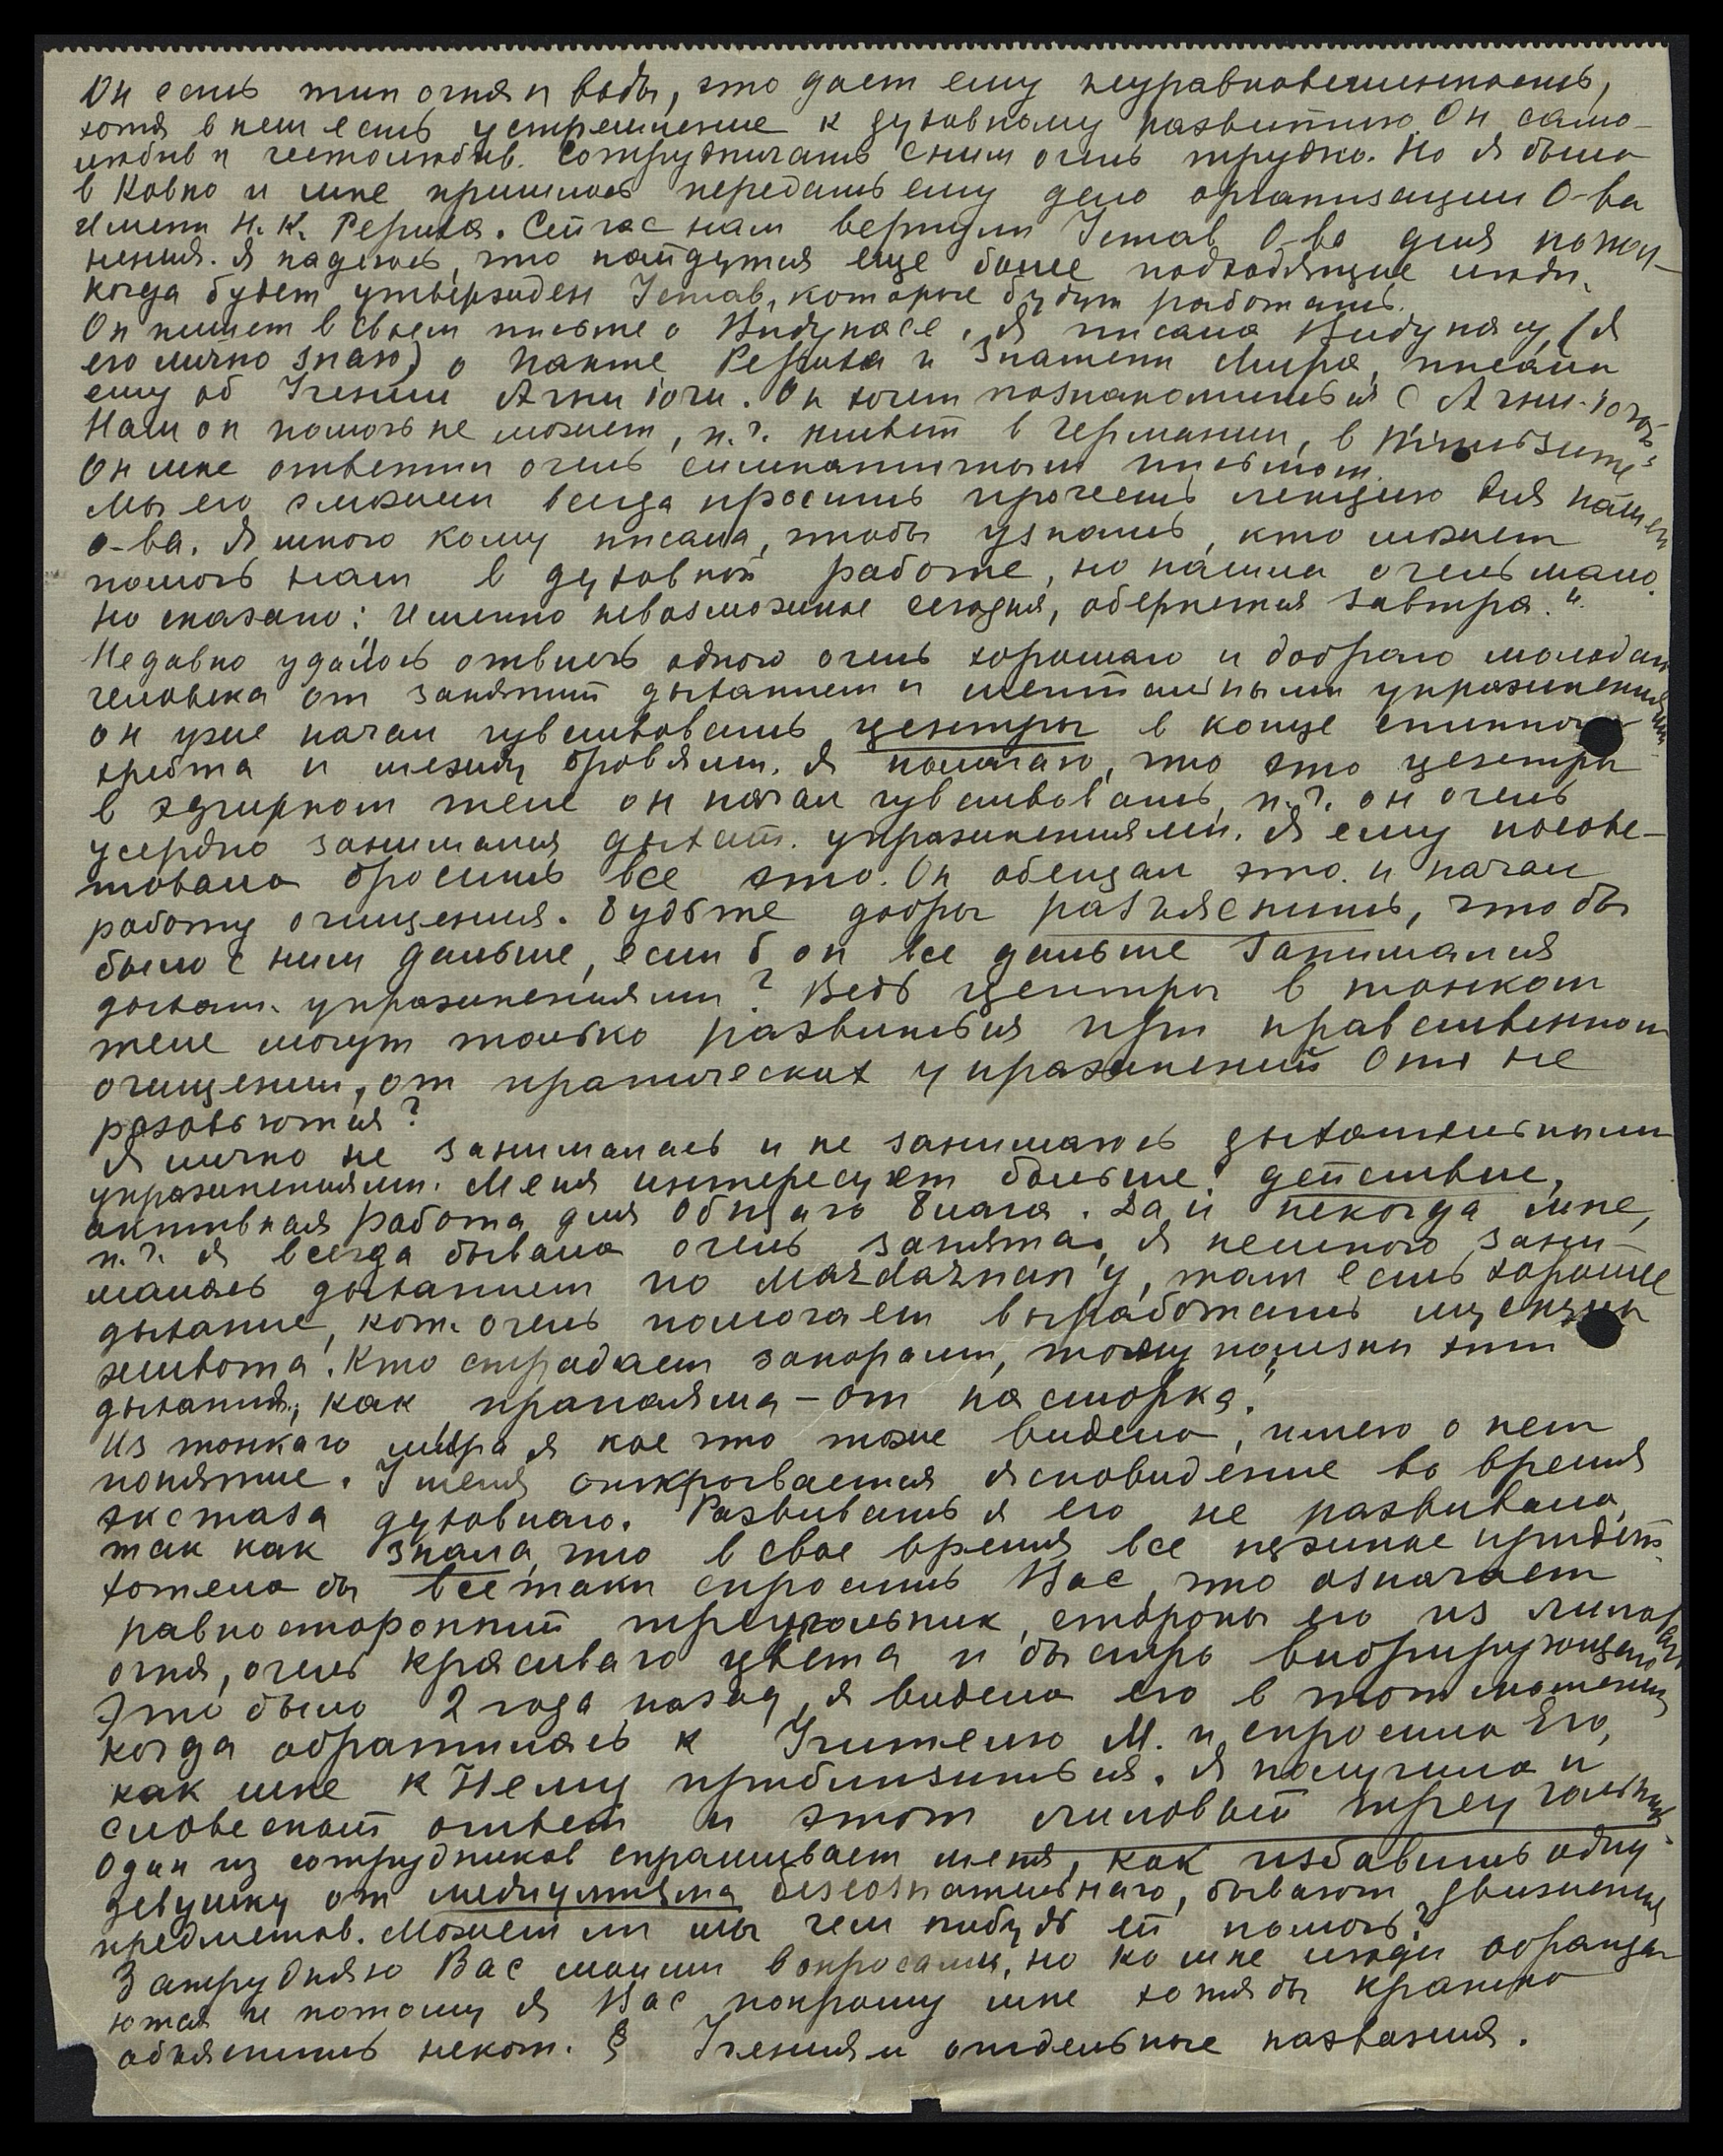 Он есть тип огня и воды, это дает ему неуравновешенность,
хотя в нем есть устремление к духовному развитию. Он само-
любив и честолюбив. Сотрудничать с ним очень трудно. Но я была
в Ковно и мне пришлось передать ему дело организации О-ва
имени Н. К. Рериха. Сейчас нам вернули Устав О-ва для
нения. Я надеюсь, что найдутся еще более подходящие люди,
когда будет утвержден Устав, которые будут работать.
Он пишет в своем письме о Видунасе. Я писала Видунасу, (я
его лично знаю) о Пакте Рериха и Знамени Мира, писала
ему об Учении Агни Йоги. Он хочет познакомиться с Агни-Йогой.
Нам он помочь не может, п.ч. живет в Германии, в Тильзите.
Он мне ответил очень симпатичным письмом.
Мы его сможем всегда просить прочесть лекцию для нашего
о-ва. Я много кому писала, чтобы узнать, кто может
помочь нам в духовной работе, но нашла очень мало.
Но сказано: „Именно невозможное сегодня, обернется завтра."
Недавно удалось отвлечь одного очень хорошаго и добраго молодого
человека от занятий дыханием и ментальными упражнениями
он уже начал чувствовать центры в конце спинного
хребта и между бровями. Я полагаю, что это центры
в эфирном теле он начал чувствовать, п.ч. он очень
усердно занимался дыхат. упражнениями. Я ему посове-
товала бросить все это. Он обещал это и начал
работу очищения. Будьте добры разъяснить, что бы
было с ним дальше, если б он все дальше занимался
дыхат. упражнениями? Ведь центры в тонком
теле могут только развиться при нравственном
очищении, от пранических упражнений они не
разовьются?
Я лично не занималась и не занимаюсь дыхательными
упражнениями. Меня интересует больше действие,
активная работа для Общаго Блага. Да и некогда мне,
п.ч. я всегда бывала очень занята, я немного зани-
малась дыханием по Mazdaznan'у, там есть хорошее
дыхание, кот. очень помогает выработать мускулы
живота. Кто страдает запорами, тому полезны эти
дыхания, как „пранаяма – от насморка".
Из тонкаго мира я кое что тоже видела, имею о нем
понятие. У меня открывается ясновидение во время
экстаза духовнаго. Развивать я его не развивала,
так как знала, что в свое время все нужное придет.
Хотела бы всетаки спросить Вас, что означает
равносторонний треугольник, стороны его из лиловаго
огня, очень красиваго цвета и быстро вибрирующаго
Это было 2 года назад, я видела его в тот момент,
когда обратилась к Учителю М. и спросила Его,
как мне к Нему приблизиться. Я получила и
словесный ответ и этот лиловый треугольник.
Один из сотрудников спрашивает меня, как избавить одну
девушку от медиумизма безсознательнаго, бывают движения
предметов. Можем ли мы чем нибудь ей помочь?
Затрудняю Вас моими вопросами, но ко мне люди обраща-
ются и потому я Вас попрошу мне хотя бы кратко
объяснить некот. § Учения и отдельные названия.